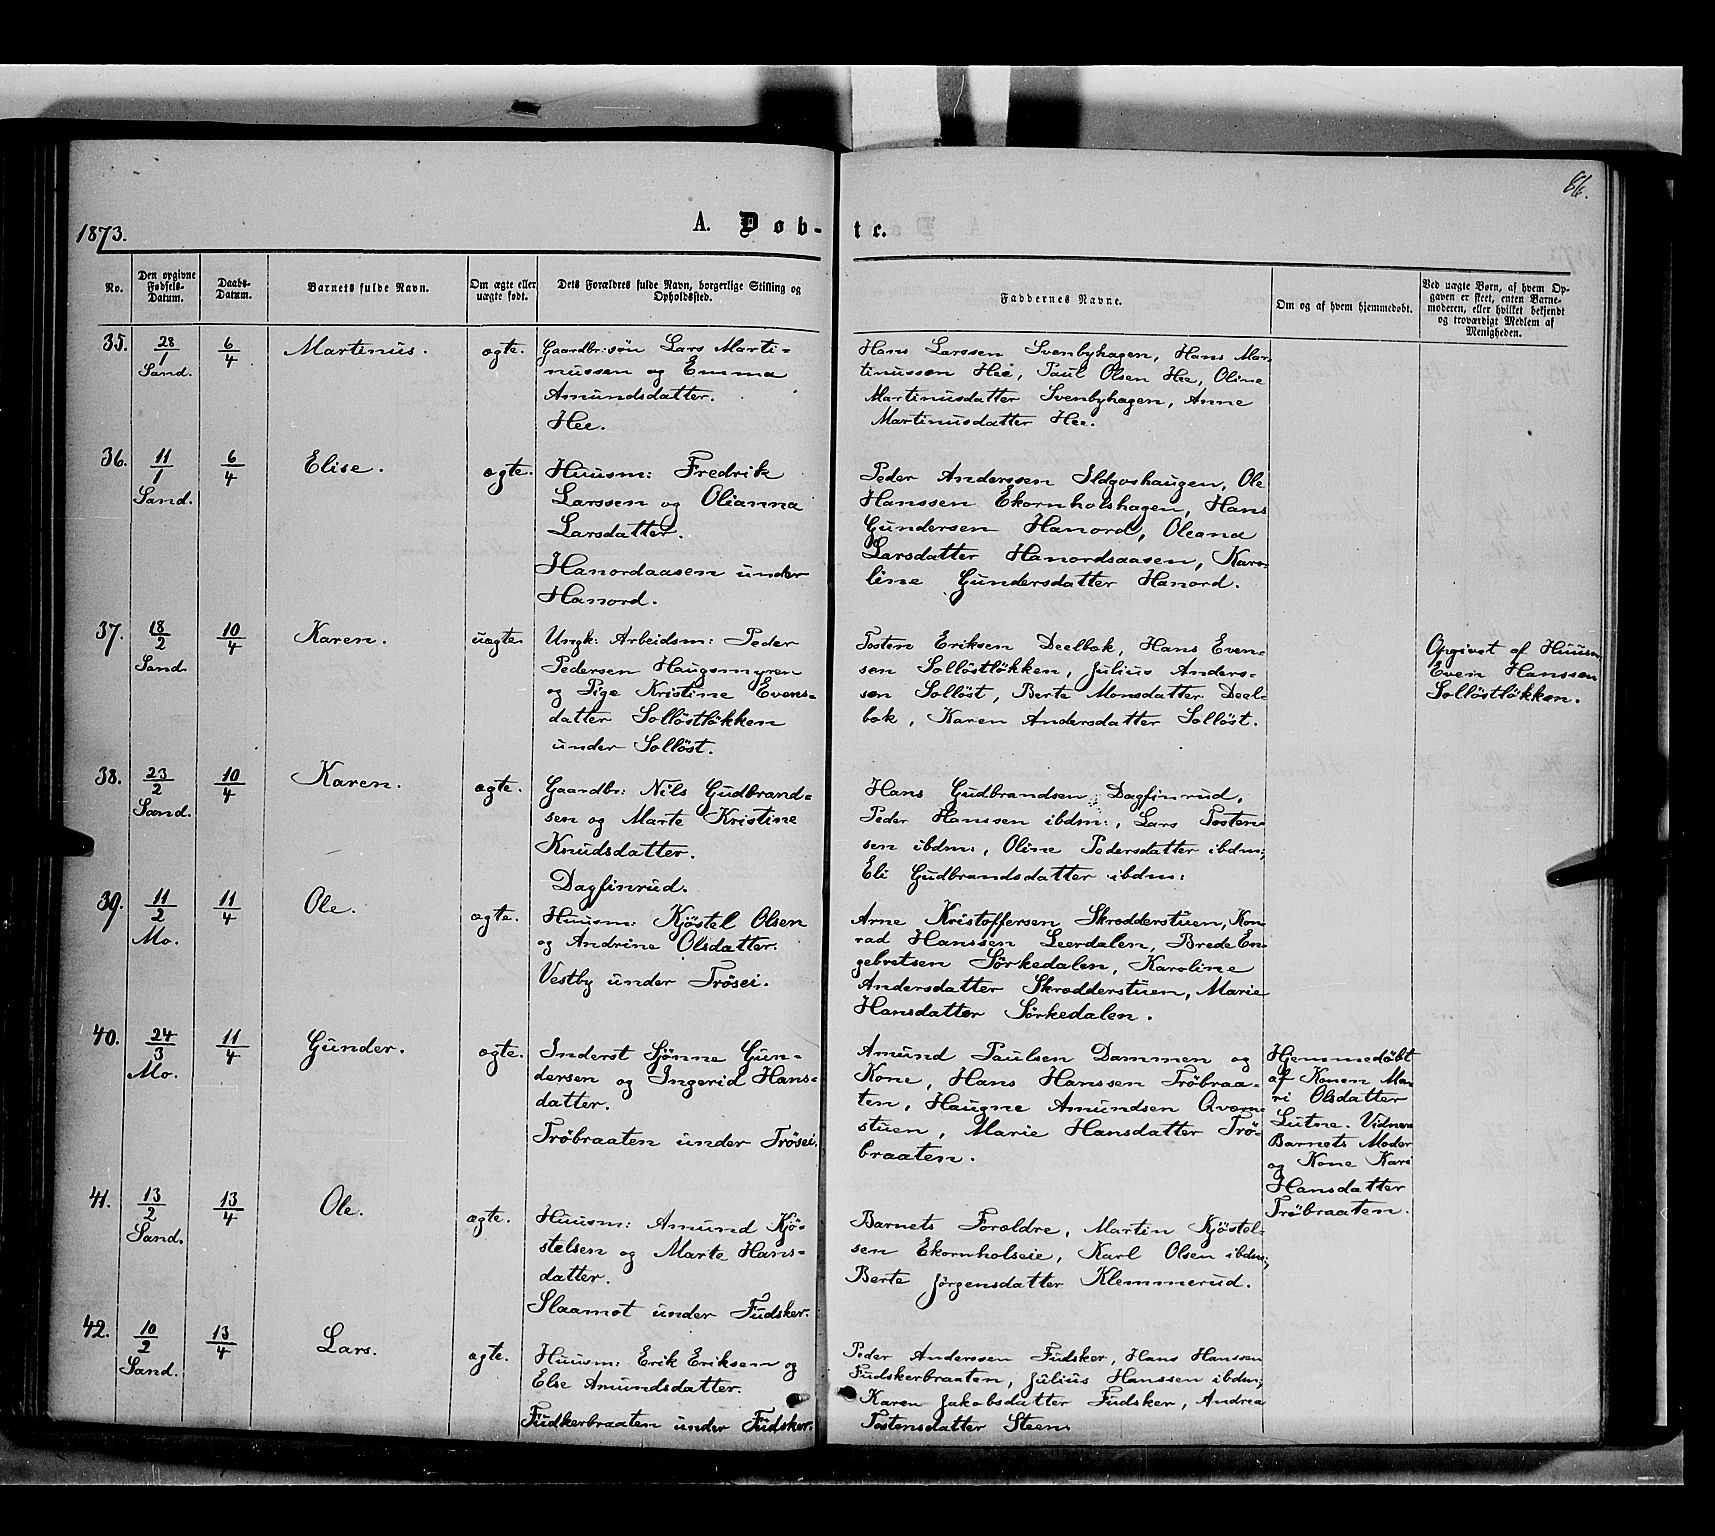 86.
1873.
A. Døb-
te.
No.
Den opgivne
Fødsels-
Datum.
Daabs-
Datum.
Barnets fulde Navn.
Om ægte eller
uægte født.
Dets Forældres fulde Navn, borgerlige Stilling og
Opholdssted.
Faddernes Navne.
Om og af hvem hjemmedøbt.
Ved uægte Børn, af hvem Op-
gaven er skeet, enten Barne-
moderen, eller hvilket bekjendt
og troværdigt Medlem af
Menigheden.
35.
28/1
Sand.
6/4
Martinus.
ægte.
Gaardbr: søn Lars Marti-
nussen og Emma
Amundsdatter.
Hee.
Hans Larssen Svenbyhagen, Hans Mar-
tinussen Hee, Paul Olsen Hee, Oline
Martinusdatter Svenbyhagen, Anne
Martinusdatter Hee.
36.
11/1
Sand.
6/4
Elise.
ægte.
Huusm: Fredrik
Larssen og Olianna
Larsdatter.
Hanordaasen under
Hanord.
Peder Anderssen Ildgoshaugen, Ole
Hanssen Ekornholshagen, Hans
Gundersen Hanord, Oleana
Larsdatter Hanordsaasen, Karo-
line Gundersdatter Hanord.
37.
18/2
Sand.
10/4
Karen.
uægte.
Ungk: Arbeidsm: Peder
Pedersen Haugsmyren
og Pige Kristine Evens-
datter Solløstløkken
under Solløst.
Tosten Eriksen Deelbak, Hans Even-
sen Solløstløkken, Julius Anders-
sen Solløst, Berte Monsdatter Deel-
bak, Karen Andersdatter Solløst.
Opgivet af Huusm
Even Hanssen
Solløstløkken.
38.
23/2
Sand.
10/4
Karen.
ægte.
Gaardbr: Nils Gudbrand-
sen og Marte Kristine
Knudsdatter.
Dagfinrud.
Hans Gudbrandsen Dagfinrud,
Peder Hanssen ibdm:, Lars Tosten-
sen ibdm:, Oline Pedersdatter ibdm;
Eli Gudbrandsdatter ibdm:
39.
11/2
Mo.
11/4
Ole.
ægte.
Huusm: Kjøstel Olsen
og Andrine Olsdatter.
Vestby under Trøsei.
Arne Kristoffersen Skrædderstuen, Kon-
rad Hanssen Leerdalen, Brede En-
gebretsen Sørkedalen, Karoline
Andersdatter Skrædderstuen, Marie
Hansdatter Sørkedalen.
40.
24/3
Mo.
11/4
Gunder.
ægte.
Inderst Sjønne Gun-
dersen og Ingerid Hans-
datter.
Trøbraaten under Trøsei.
Amund Paulsen Dammen og
Kone, Hans Hanssen Trøbraa-
ten, Haugne Amundsen Qværne
stuen, Marie Hansdatter Trø-
braaten.
Hjemmedøbt
af Konen Ma-
ri Olsdatter
Lutne. Vidner
Barnets Moder
og Kone Kari
Hansdatter
Trøbraaten.
41.
13/2
Sand.
13/4
Ole.
ægte.
Huusm: Amund Kjø-
stelsen og Marte Hans-
datter.
Slaamot under Fudsker.
Barnets Forældre, Martin Kjøstel-
sen Ekornholseie, Karl Olsen ibdm;
Berte Jørgensdatter Klemmerud.
42.
10/2
Sand.
13/4
Lars.
ægte.
Huusm: Erik Eriksen og
Else Amundsdatter.
Fudkerbraaten under Fudsker.
Peder Anderssen Fudsker, Hans Hanssen
Fudskerbraaten, Julius Hanssen ibdm;
Karen Jakobsdatter Fudsker, Andrea
Tostensdatter Steen.